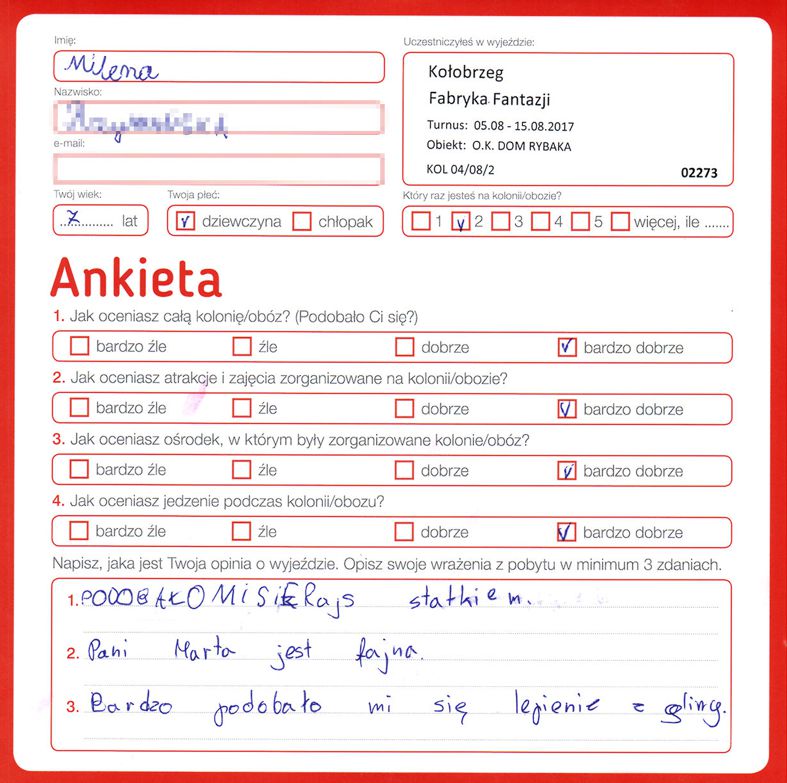 Imię:
Milena
Nazwisko:
e-mail:
Twój wiek:
7 lat
Twoja płeć:
dziewczyna chłopak
Uczestniczyłeś w wyjeździe:
Kołobrzeg
Fabryka Fantazji
Turnus: 05.08 - 15.08.2017
Obiekt: O.K. DOM RYBAKA
KOL 04/08/2 02273
Który raz jesteś na kolonii/obozie?
1 2 3 4 5 więcej, ile .......
Ankieta
1. Jak oceniasz całą kolonię/obóz? (Podobało Ci się?)
bardzo źle źle dobrze bardzo dobrze
2. Jak oceniasz atrakcje i zajęcia zorganizowane na kolonii/obozie?
bardzo źle źle dobrze bardzo dobrze
3. Jak oceniasz ośrodek, w którym były zorganizowane kolonie/obóz?
bardzo źle źle dobrze bardzo dobrze
4. Jak oceniasz jedzenie podczas kolonii/obozu?
bardzo źle źle dobrze bardzo dobrze
Napisz, jaka jest Twoja opinia o wyjeździe. Opisz swoje wrażenia z pobytu w minimum 3 zdaniach.
1. PODOBAŁO Mi SiĘ Rajs statkiem.
2. Pani Marta jest fajna.
3. Bardzo podobało mi się lepienie z gliny.